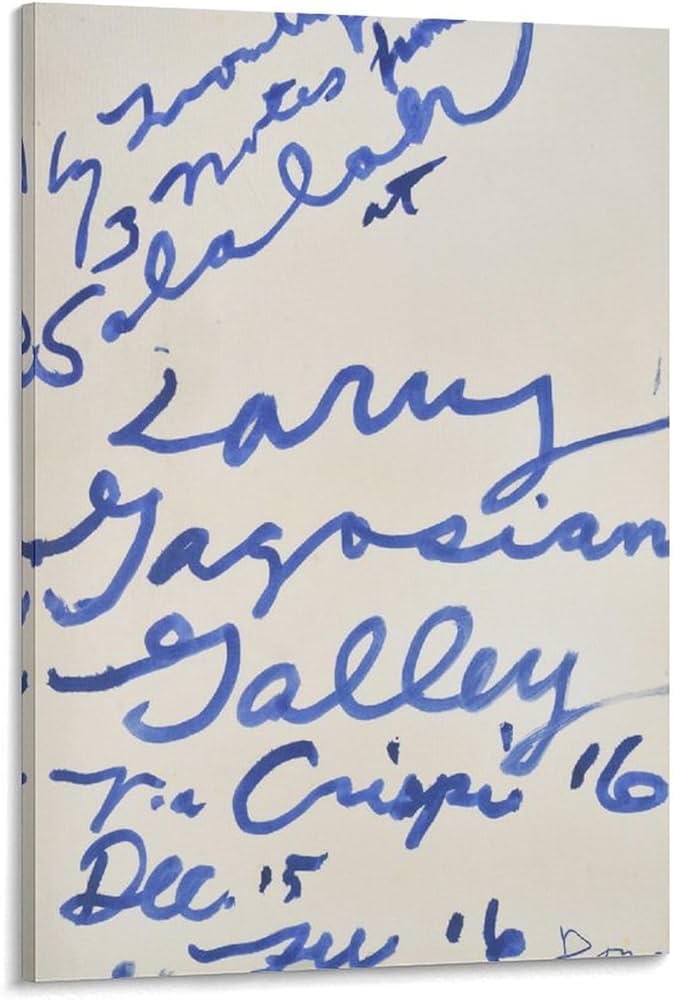 3 notes from
Salalah
at
Larry
Gagosian
Galley
Via Crispi '16
Dec. 15
'16